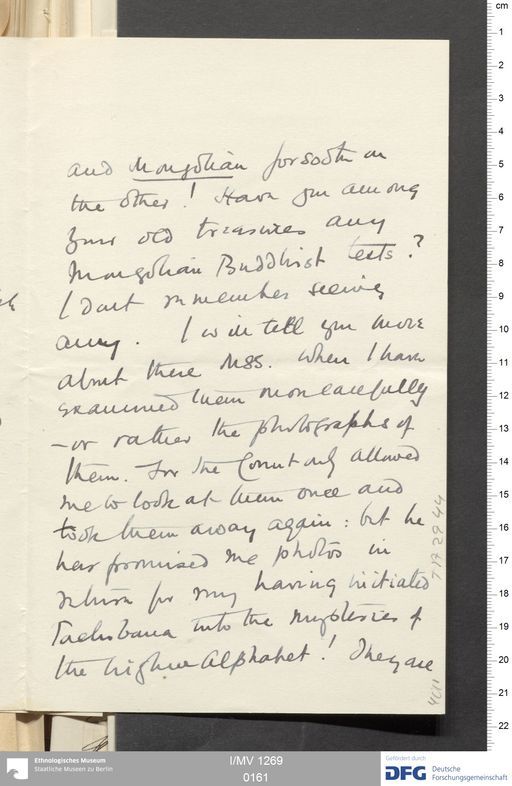 and Mongolian forsooth on
the other! Have you among
your old treasures any
Mongolian Buddhist texts?
I dont remember seeing
any. I will tell you more
about these MSS. when I have
examined them more carefully
– or rather the photographs of
them. For the Count only allowed
me to look at them once and
took them away again: but he
has promised me photos in
return for my having initiated
Tachibana into the mysteries of
the higher Alphabet! They are
cm
1
2
3
4
5
6
7
8
9
10
11
12
13
14
15
16
17
18
19
20
21
22
Ethnologisches Museum
Staatliche Museen zu Berlin
I/MV 1269
0161
Gefördert durch
DFG Deutsche
Forschungsgemeinschaft